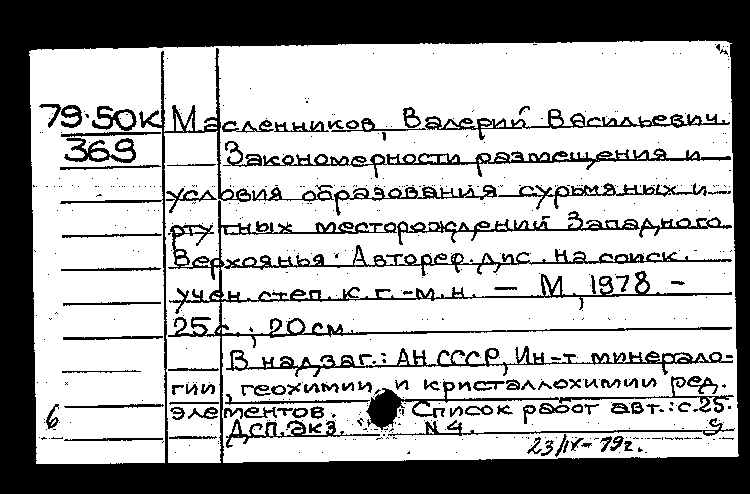 79-50К Масленников, Валерий Васильевич.
369 Закономерности размещения и
условия образования сурьмяных и
ртутных месторождений Западного
Верхоянья. Автореф. дис. на соиск.
учен. степ. к. г.-м. н. — М, 1978. -
25 с.; 20 см.
В надзаг.: АН СССР, Ин-т минерало-
гии, геохимии и кристаллохимии ред.
элементов. Список работ авт.: с. 25.
ДСП. Экз. N 4.
6
23/IV-79г.